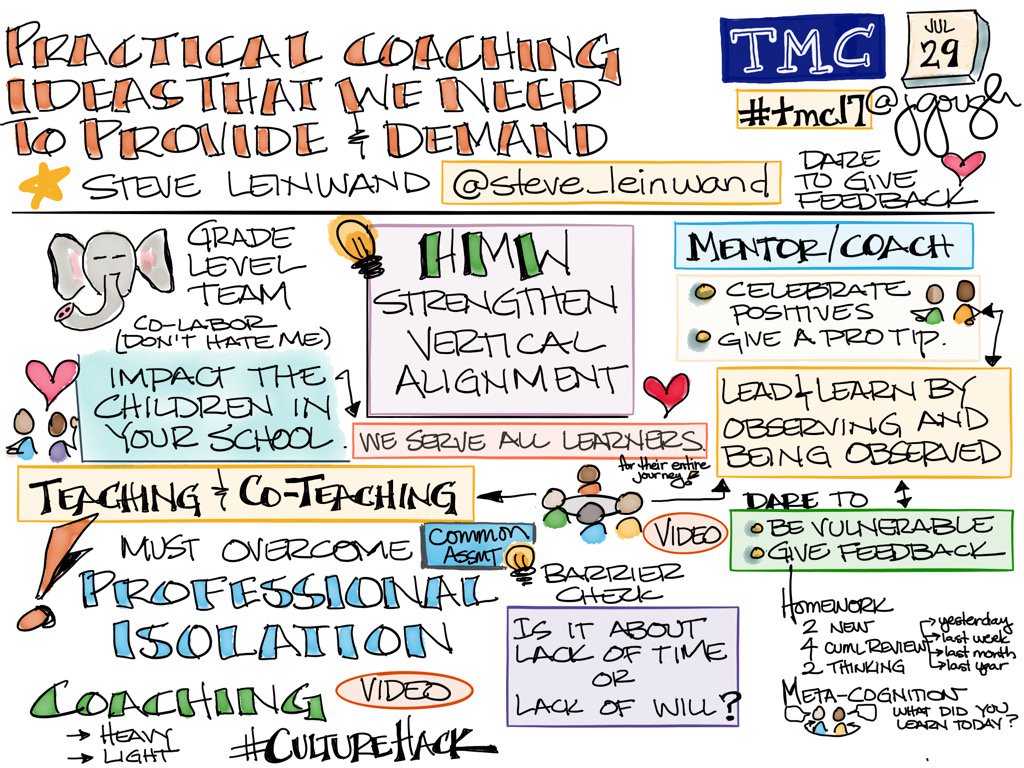 PRACTICAL COACHING
IDEAS THAT WE NEED
TO PROVIDE & DEMAND
STEVE LEINWAND @steve_leinwand
TMC
JUL
29
#tmc17 @jgough
DARE
TO GIVE
FEEDBACK
GRADE
LEVEL
TEAM
CO-LABOR
(DON'T HATE ME)
IMPACT THE
CHILDREN IN
YOUR SCHOOL.
HMW
STRENGTHEN
VERTICAL
ALIGNMENT
WE SERVE ALL LEARNERS
for their entire
journey!
MENTOR/COACH
CELEBRATE
POSITIVES
GIVE A PRO TIP.
LEAD & LEARN BY
OBSERVING AND
BEING OBSERVED
DARE TO
BE VULNERABLE
GIVE FEEDBACK
TEACHING & CO-TEACHING
VIDEO
! MUST OVERCOME
PROFESSIONAL
ISOLATION
COMMON
ASSMT
BARRIER
CHECK
IS IT ABOUT
LACK OF TIME
OR
LACK OF WILL?
HOMEWORK
2 NEW
4 CUML REVIEW
2 THINKING
→ yesterday
→ last week
→ last month
→ last year
META-COGNITION
WHAT DID YOU
LEARN TODAY?
COACHING
→ HEAVY
→ LIGHT
VIDEO
#CULTUREHACK